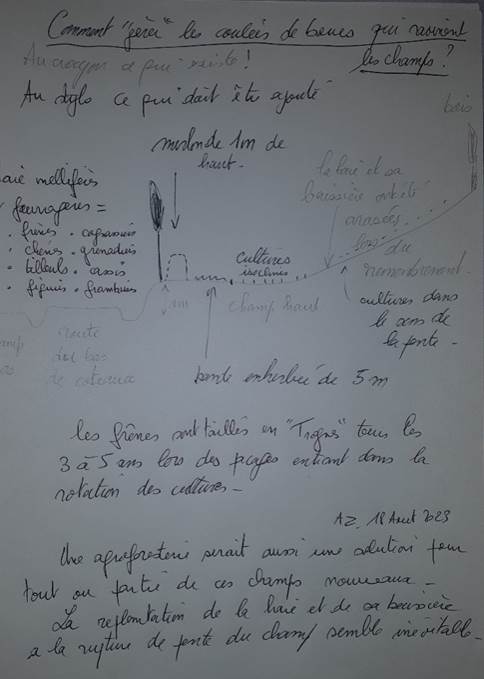 Comment "gérer" les coulées de boues qui ravinent
les champs?
Au crayon ce qui existe!
Au stylo ce qui doit être ajouté
bois
merlon de 1m de
haut.
haie mellifères
fourragères =
. frênes . cognassiers
. chênes . grenadiers
. tilleuls . cassis
. figuier . framboises
la haie et sa
baissière ont été
arasées
lors du
remembrement.
cultures
isoclines
cultures dans
le sens de
la pente.
1m
champ haut
champ
bas
route
du bas
de
bande enherbée de 5m
Les frênes sont taillés en "Trognes" tous les
3 à 5 ans lors des pacages entrant dans la
rotation des cultures.
AZ. 18 Aout 2023
Une agroforesterie serait aussi une solution pour
tout ou partie de ces champs nouveaux.
La replantation de la haie et de sa baissière
a la rupture de pente du champ semble inévitable.